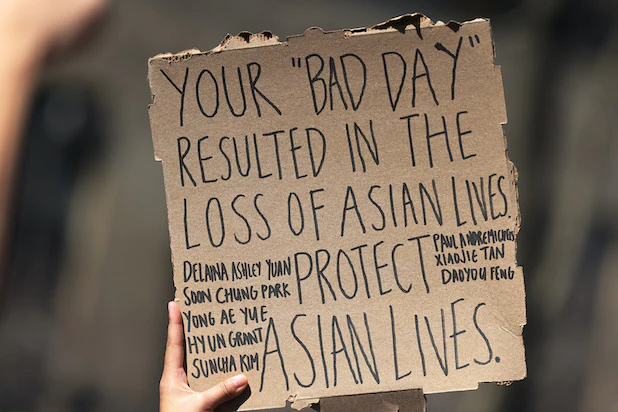 YOUR "BAD DAY"
RESULTED IN THE
LOSS OF ASIAN LIVES
PROTECT
ASIAN LIVES.
DELAINA ASHLEY YUAN
SOON CHUNG PARK
YONG AE YUE
HYUN GRANT
SUNCHA KIM
PAUL ANDRE MICHELS
XIAOJIE TAN
DAOYOU FENG